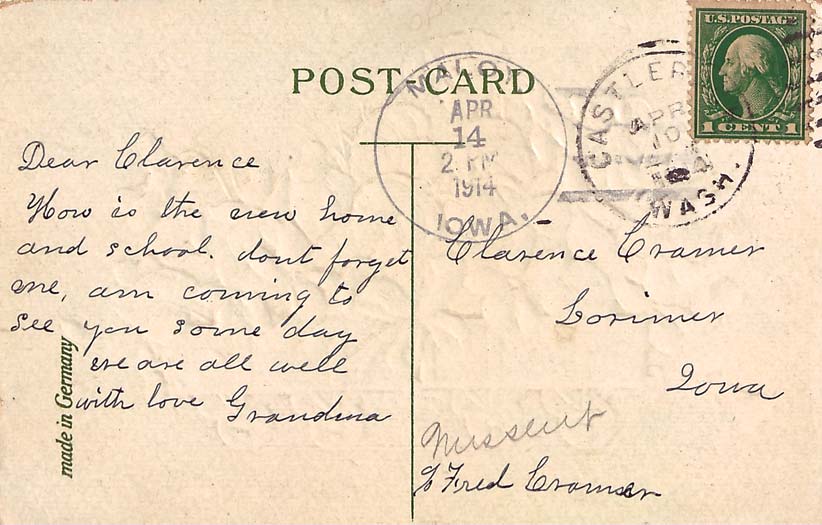 U.S. POSTAGE
1 CENT 1
POST-CARD
CASTLER
APR
10
WASH.
APR
14
2 PM
1914
IOWA.
Dear Clarence
How is the new home
and school. dont forget
me, am coming to
see you some day
we are all well
with love Grandma
made in Germany
Clarence Cramer
Lorimer
Iowa
Missent
℅ Fred Cramer